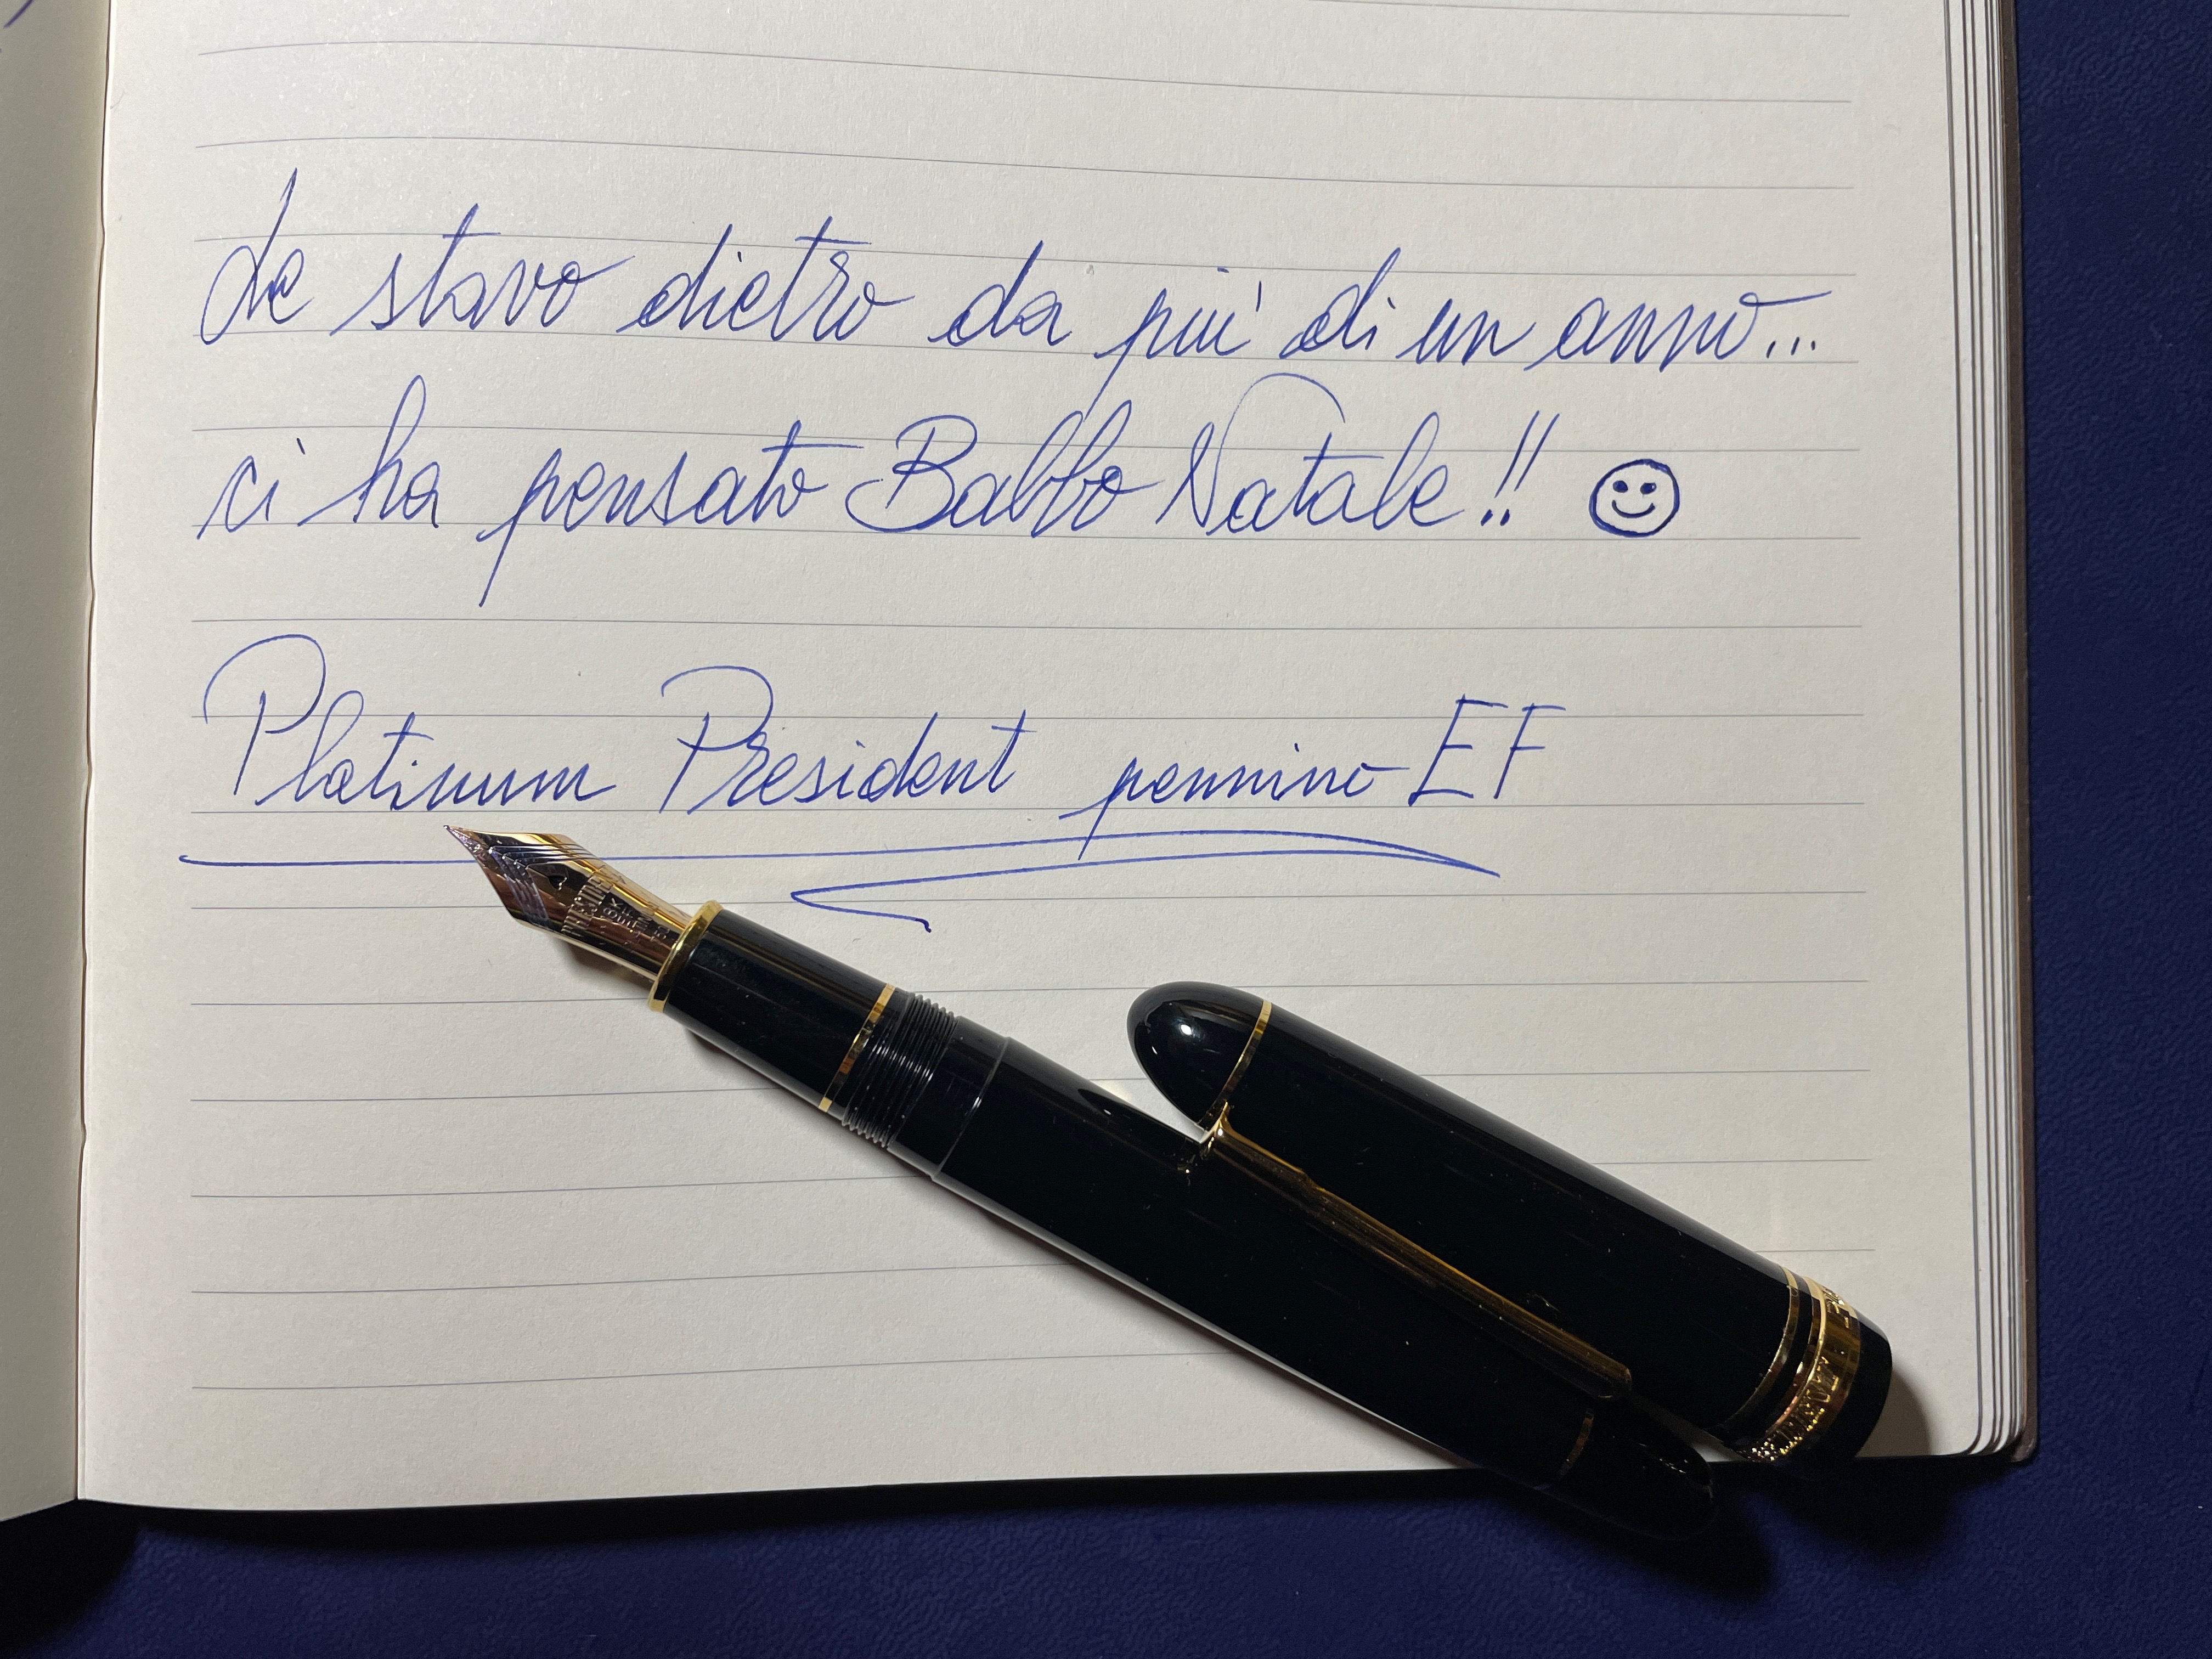 Le stavo dietro da più di un anno...
ci ha pensato Babbo Natale!! ☺
Platinum President pennino EF
18K